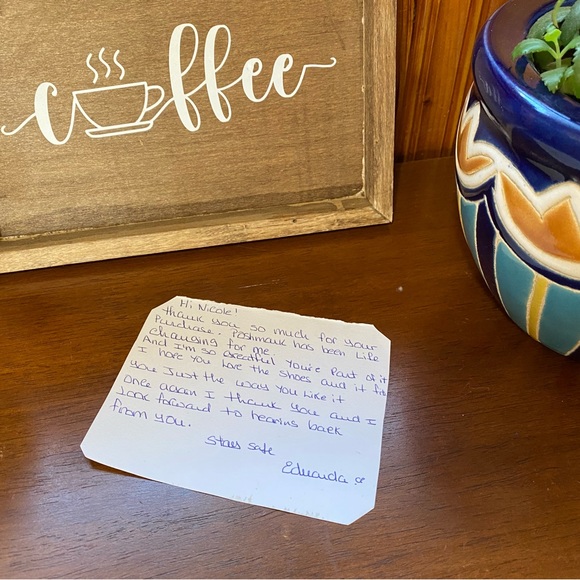 coffee
Hi Nicole!
Thank you so much for your
Purchase. Poshmark has been Life
Changing for me.
And I'm so greatful you're Part of it
I hope you Love the shoes and it fits
you Just the way you Like it
Once again I thank you and I
Look forward to hearing back
from you.
Stay safe
Eduarda